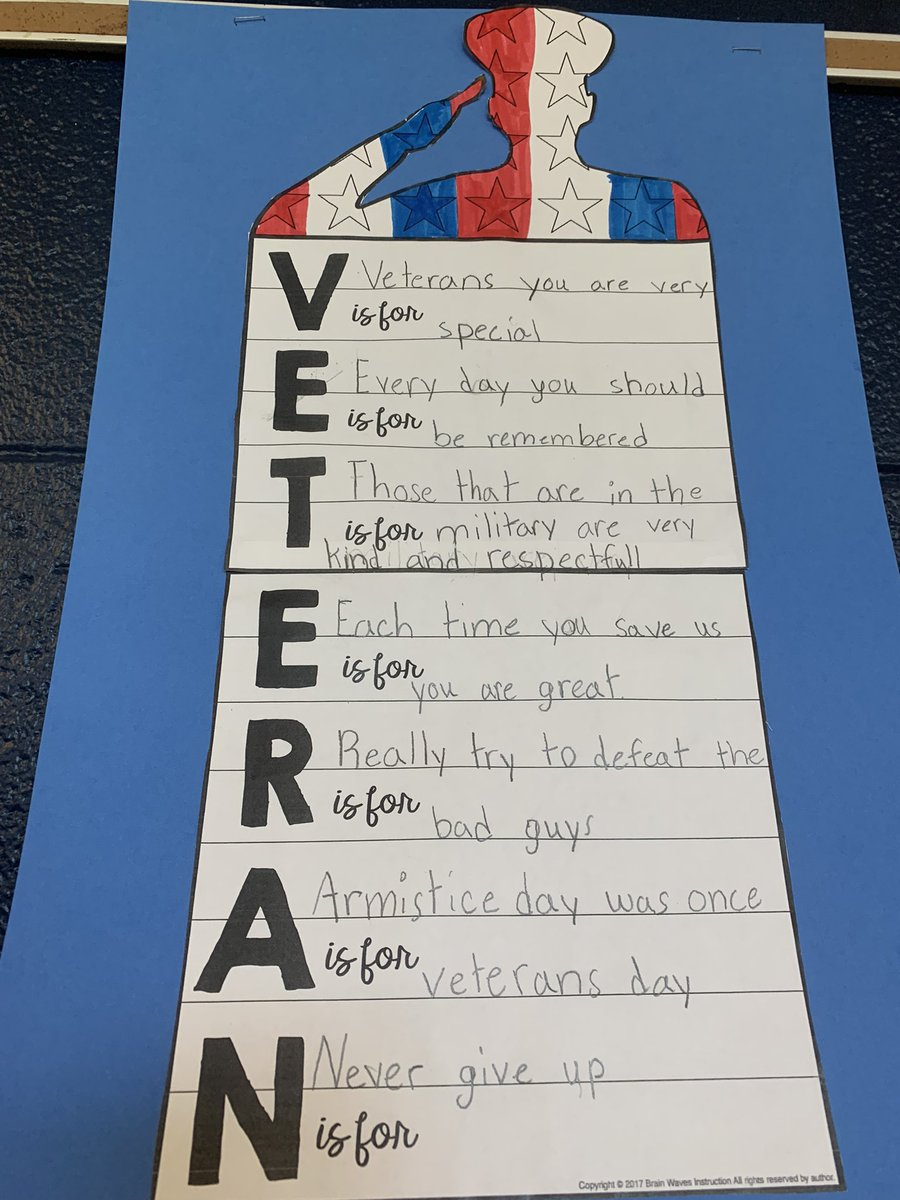 V Veterans you are very
is for special
E Every day you should
is for be remembered
T Those that are in the
is for military are very
kind and respectfull
E Each time you save us
is for you are great
R Really try to defeat the
is for bad guys
A Armistice day was once
is for veterans day
N Never give up
is for
Copyright © 2017 Brain Waves Instruction All rights reserved by author.